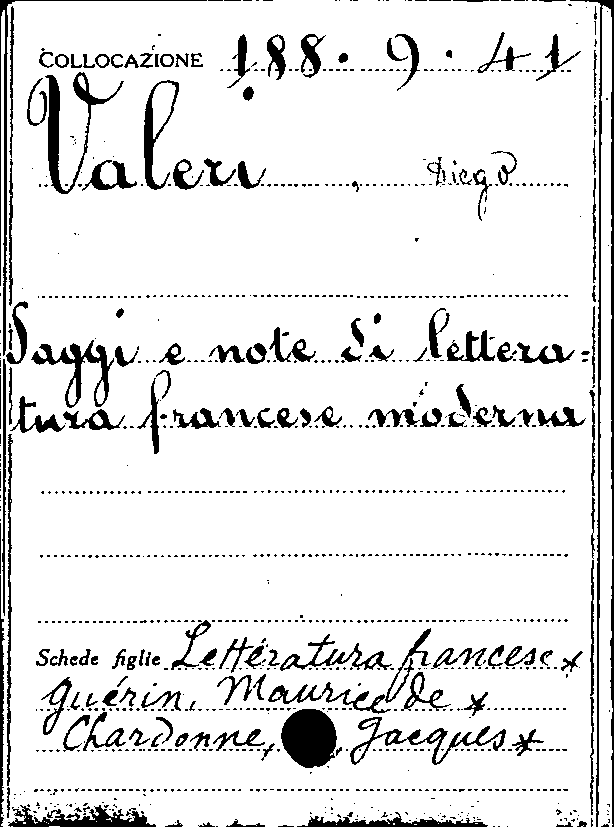 COLLOCAZIONE 188. 9. 41
Valeri, Diego
Saggi e note di lettera=
tura francese moderna
Schede figlie Letteratura francese *
Guérin, Maurice de *
Chardonne, Jacques *